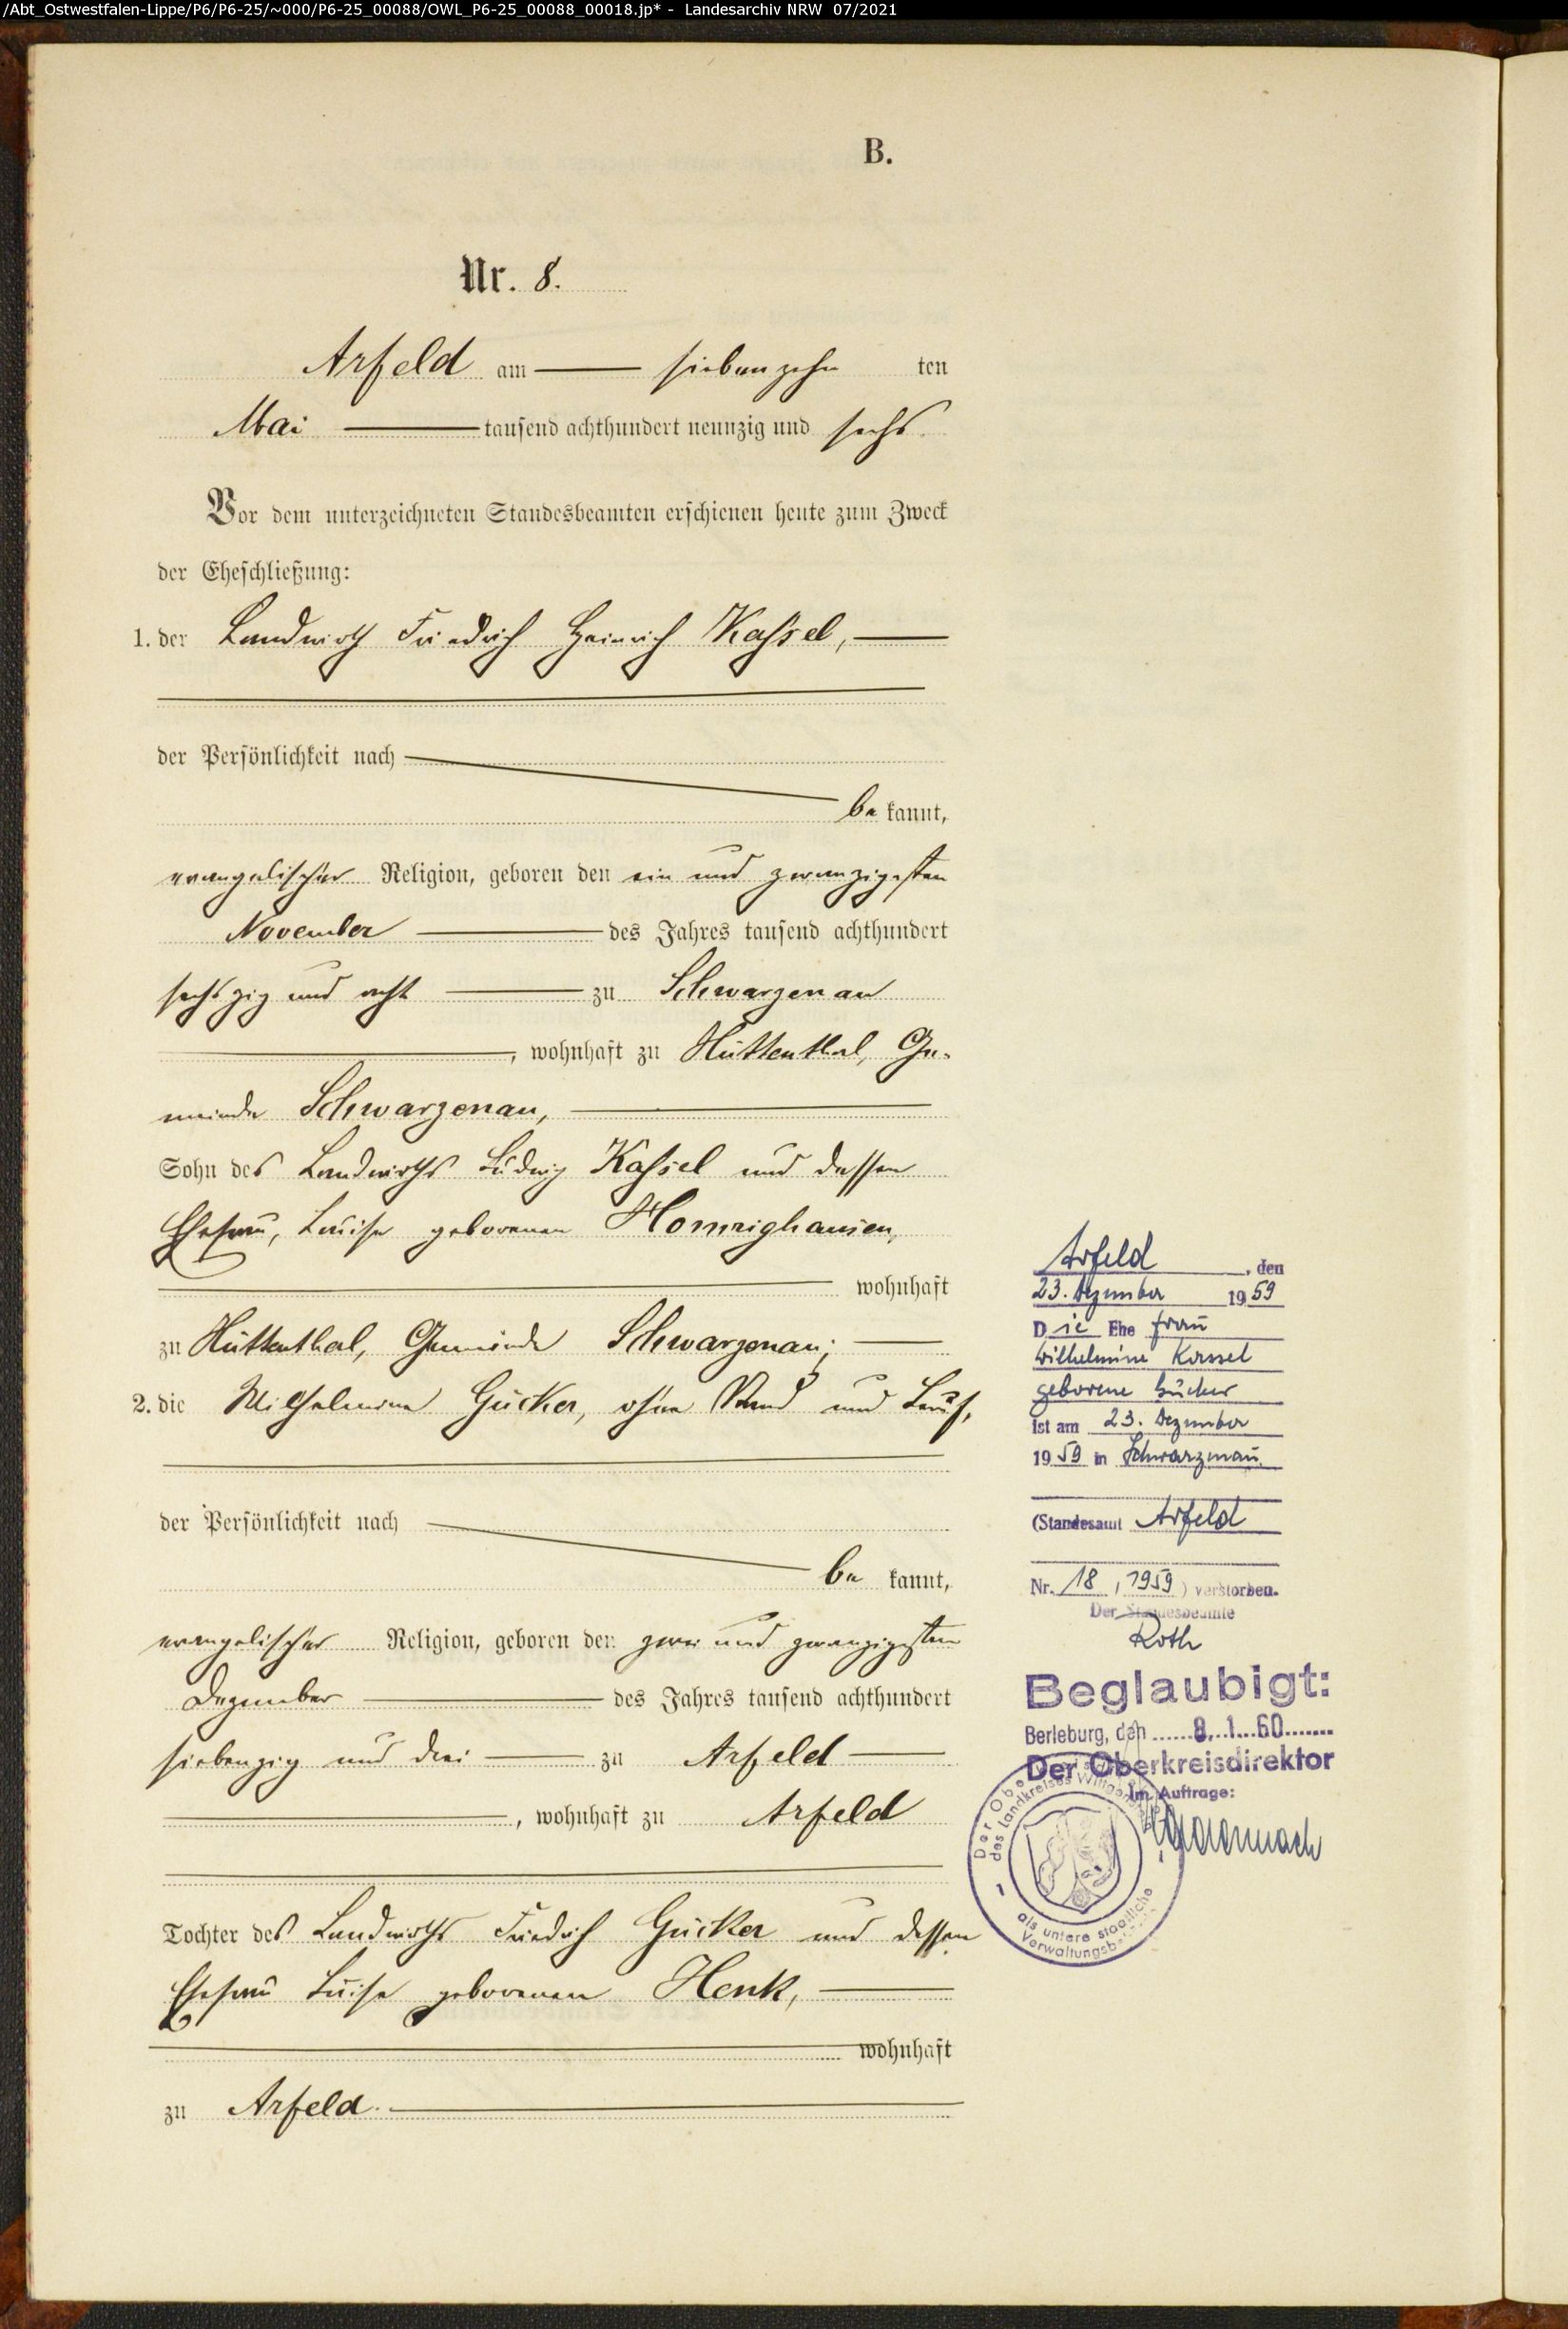 /Abt_Ostwestfalen-Lippe/P6/P6-25/~000/P6-25_00088/OWL_P6-25_00088_00018.jp* - Landesarchiv NRW 07/2021
B.
Nr. 8.
Arfeld am siebenzehn ten
Mai tausend achthundert neunzig und sechs.
Vor dem unterzeichneten Standesbeamten erschienen heute zum Zweck
der Eheschließung:
1. der Landwirth Friedrich Heinrich Kassel,
der Persönlichkeit nach
be kannt,
evangelischer Religion, geboren den ein und zwanzigsten
November des Jahres tausend achthundert
sechszig und acht zu Schwarzenau
, wohnhaft zu Hüttenthal, Ge-
meinde Schwarzenau,
Sohn des Landwirths Ludwig Kassel und dessen
Ehefrau, Louise geborenen Homrighausen,
wohnhaft
zu Hüttenthal, Gemeinde Schwarzenau;
2. die Wilhelmine Gücker, ohne Stand und Beruf,
der Persönlichkeit nach
be kannt,
evangelischer Religion, geboren den zwei und zwanzigsten
Dezember des Jahres tausend achthundert
siebenzig und drei zu Arfeld
, wohnhaft zu Arfeld
Tochter des Landwirths Friedrich Gücker und dessen
Ehefrau Luise geborenen Henk,
wohnhaft
zu Arfeld.
Arfeld, den
23. Dezember 1959
Die Ehefrau
Wilhelmine Kassel
geborene Gücker
ist am 23. Dezember
1959 in Schwarzenau
(Standesamt Arfeld
Nr. 18, 1959) verstorben.
Der Standesbeamte
Roth
Beglaubigt:
Berleburg, den 8.1.60
Der Oberkreisdirektor
Im Auftrage:
des Landkreises
als untere staatliche